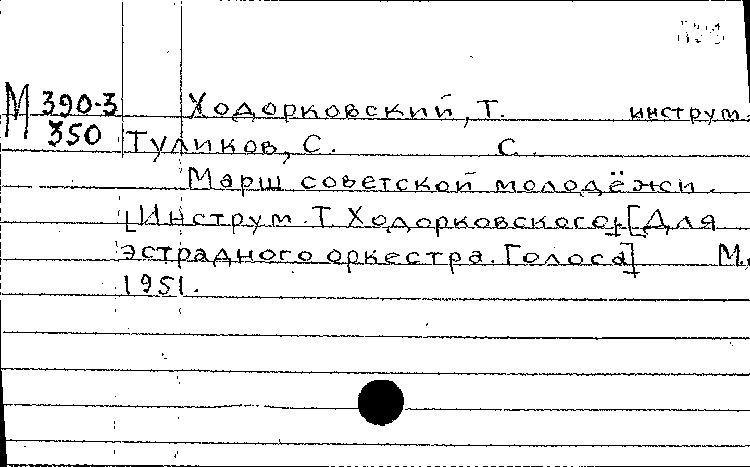 М 390-3 Ходорковский, Т. инструм.
350 Туликов, С. С.
Марш советской молодёжи.
[Инструм. Т. Ходорковского]. [Для
эстрадного оркестра. Голоса] М.
1951.